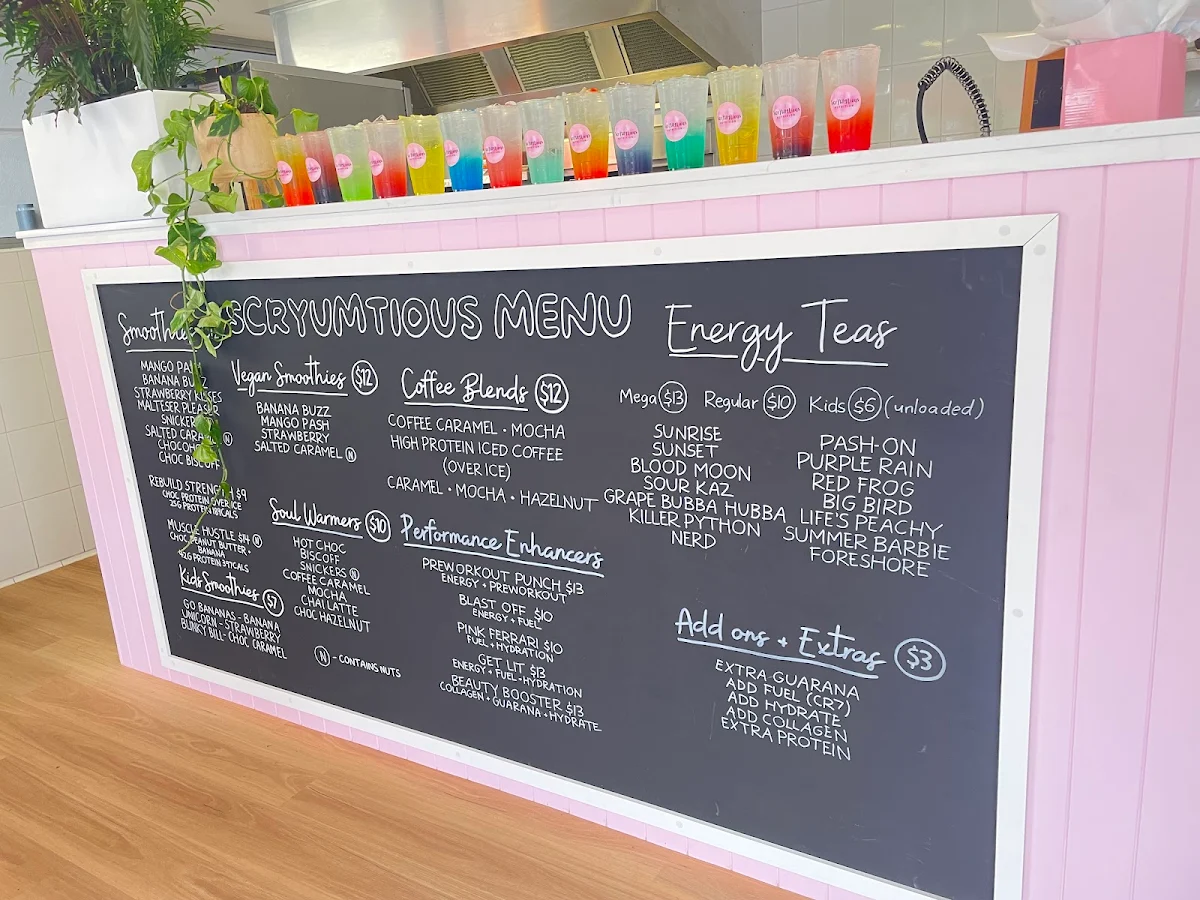 SCRYUMTIOUS MENU
MANGO
BANANA
STRAWBERRY KISSES
MALTESER PLEASER
SALTED Ⓝ
CHOC BISCOFF
REBUILD STRENGTH $9
CHOC PROTEIN OVER ICE
MUSCLE HUSTLE $14 Ⓝ
CHOC PEANUT BUTTER •
BANANA
Kids Smoothies $7
GO BANANAS - BANANA
UNICORN - STRAWBERRY
BLINKY BILL - CHOC CARAMEL
Vegan Smoothies $12
BANANA BUZZ
MANGO PASH
STRAWBERRY
SALTED CARAMEL Ⓝ
Soul Warmers $10
HOT CHOC
BISCOFF
SNICKERS Ⓝ
COFFEE CARAMEL
MOCHA
CHAI LATTE
CHOC HAZELNUT
Ⓝ - CONTAINS NUTS
Coffee Blends $12
COFFEE CARAMEL • MOCHA
HIGH PROTEIN ICED COFFEE
(OVER ICE)
CARAMEL • MOCHA • HAZELNUT
Performance Enhancers
PREWORKOUT PUNCH $13
ENERGY + PREWORKOUT
BLAST OFF $10
ENERGY + FUEL
PINK FERRARI $10
FUEL + HYDRATION
GET LIT $13
ENERGY + FUEL + HYDRATION
BEAUTY BOOSTER $13
COLLAGEN + GUARANA + HYDRATE
Energy Teas
Mega $13 Regular $10 Kids $6 (unloaded)
SUNRISE
SUNSET
BLOOD MOON
SOUR KAZ
GRAPE BUBBA HUBBA
KILLER PYTHON
NERD
PASH-ON
PURPLE RAIN
RED FROG
BIG BIRD
LIFE'S PEACHY
SUMMER BARBIE
FORESHORE
Add ons + Extras $3
EXTRA GUARANA
ADD FUEL (CR7)
ADD HYDRATE
ADD COLLAGEN
EXTRA PROTEIN